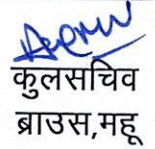 कुलसचिव
ब्राउस,महू